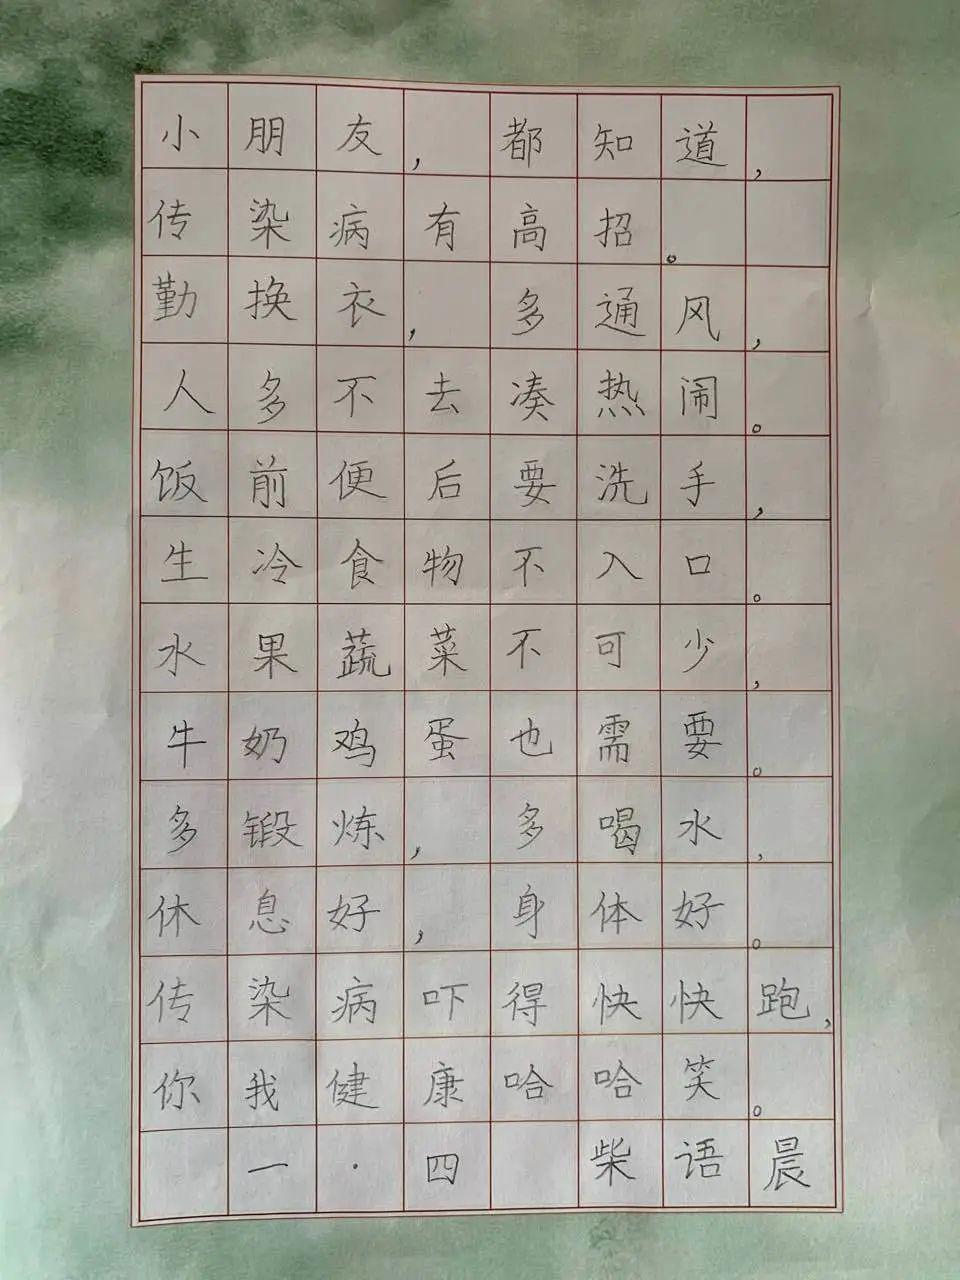 小朋友，都知道，
传染病有高招。
勤换衣，多通风，
人多不去凑热闹。
饭前便后要洗手，
生冷食物不入口。
水果蔬菜不可少，
牛奶鸡蛋也需要。
多锻炼，多喝水，
休息好，身体好。
传染病吓得快快跑，
你我健康哈哈笑。
一·四 柴语晨